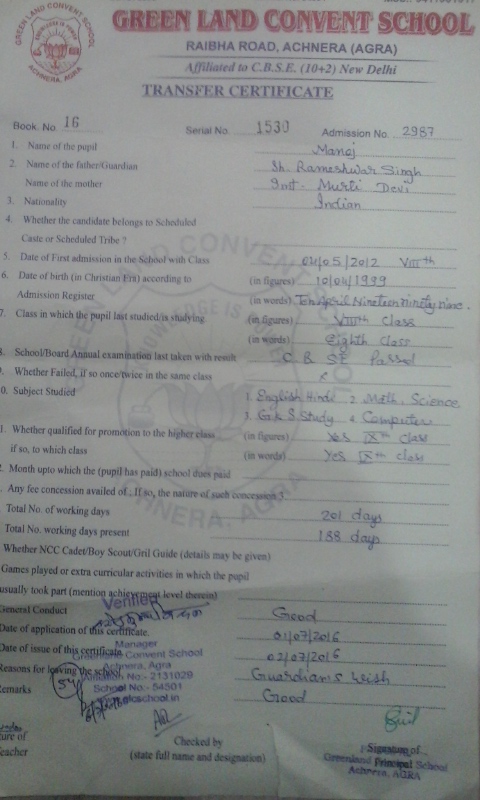 GREEN LAND CONVENT SCHOOL
RAIBHA ROAD, ACHNERA (AGRA)
Affiliated to C.B.S.E. (10+2) New Delhi
TRANSFER CERTIFICATE
Book. No. 16 Serial No. 1530 Admission No. 2987
1. Name of the pupil Manoj
2. Name of the father/Guardian Sh. Rameshwar Singh
Name of the mother Smt. Murti Devi
3. Nationality Indian
4. Whether the candidate belongs to Scheduled
Caste or Scheduled Tribe ?
5. Date of First admission in the School with Class 04/05/2012 VIIIth
6. Date of birth (in Christian Era) according to (in figures) 10/04/1999
Admission Register (in words) Ten April Nineteen ninety Nine.
7. Class in which the pupil last studied/is studying. (in figures) VIIIth Class
(in words) Eighth Class
8. School/Board Annual examination last taken with result C B SE Passed
9. Whether Failed, if so once/twice in the same class
0. Subject Studied 1. English Hindi 2 Math, Science
3. G.K S.Study 4 Computer
1. Whether qualified for promotion to the higher class (in figures) Yes IXth Class
if so, to which class (in words) Yes IXth class
2. Month upto which the (pupil has paid) school does paid
. Any fee concession availed of . If so, the nature of such concession 3
Total No. of working days 201 days
Total No. working days present 188 days
Whether NCC Cadet/Boy Scout/Gril Guide (details may be given)
Games played or extra curricular activities in which the pupil
usually took part (mention achievement level therein)
Verified
General Conduct Good
Date of application of this certificate. 01/07/2016
Manager
Date of issue of this certificate. 02/07/2016
Convent School
Achnera, Agra
Reasons for leaving the school Guardhan's wish
No.- 2131029
School No.- 54501
Remarks Good
Checked by
(state full name and designation)
Signature of
Principal
Greenland School
Achnera, AGRA
Teacher
GREEN LAND CONVENT SCHOOL
KNOWLEDGE IS
ACHNERA, AGRA